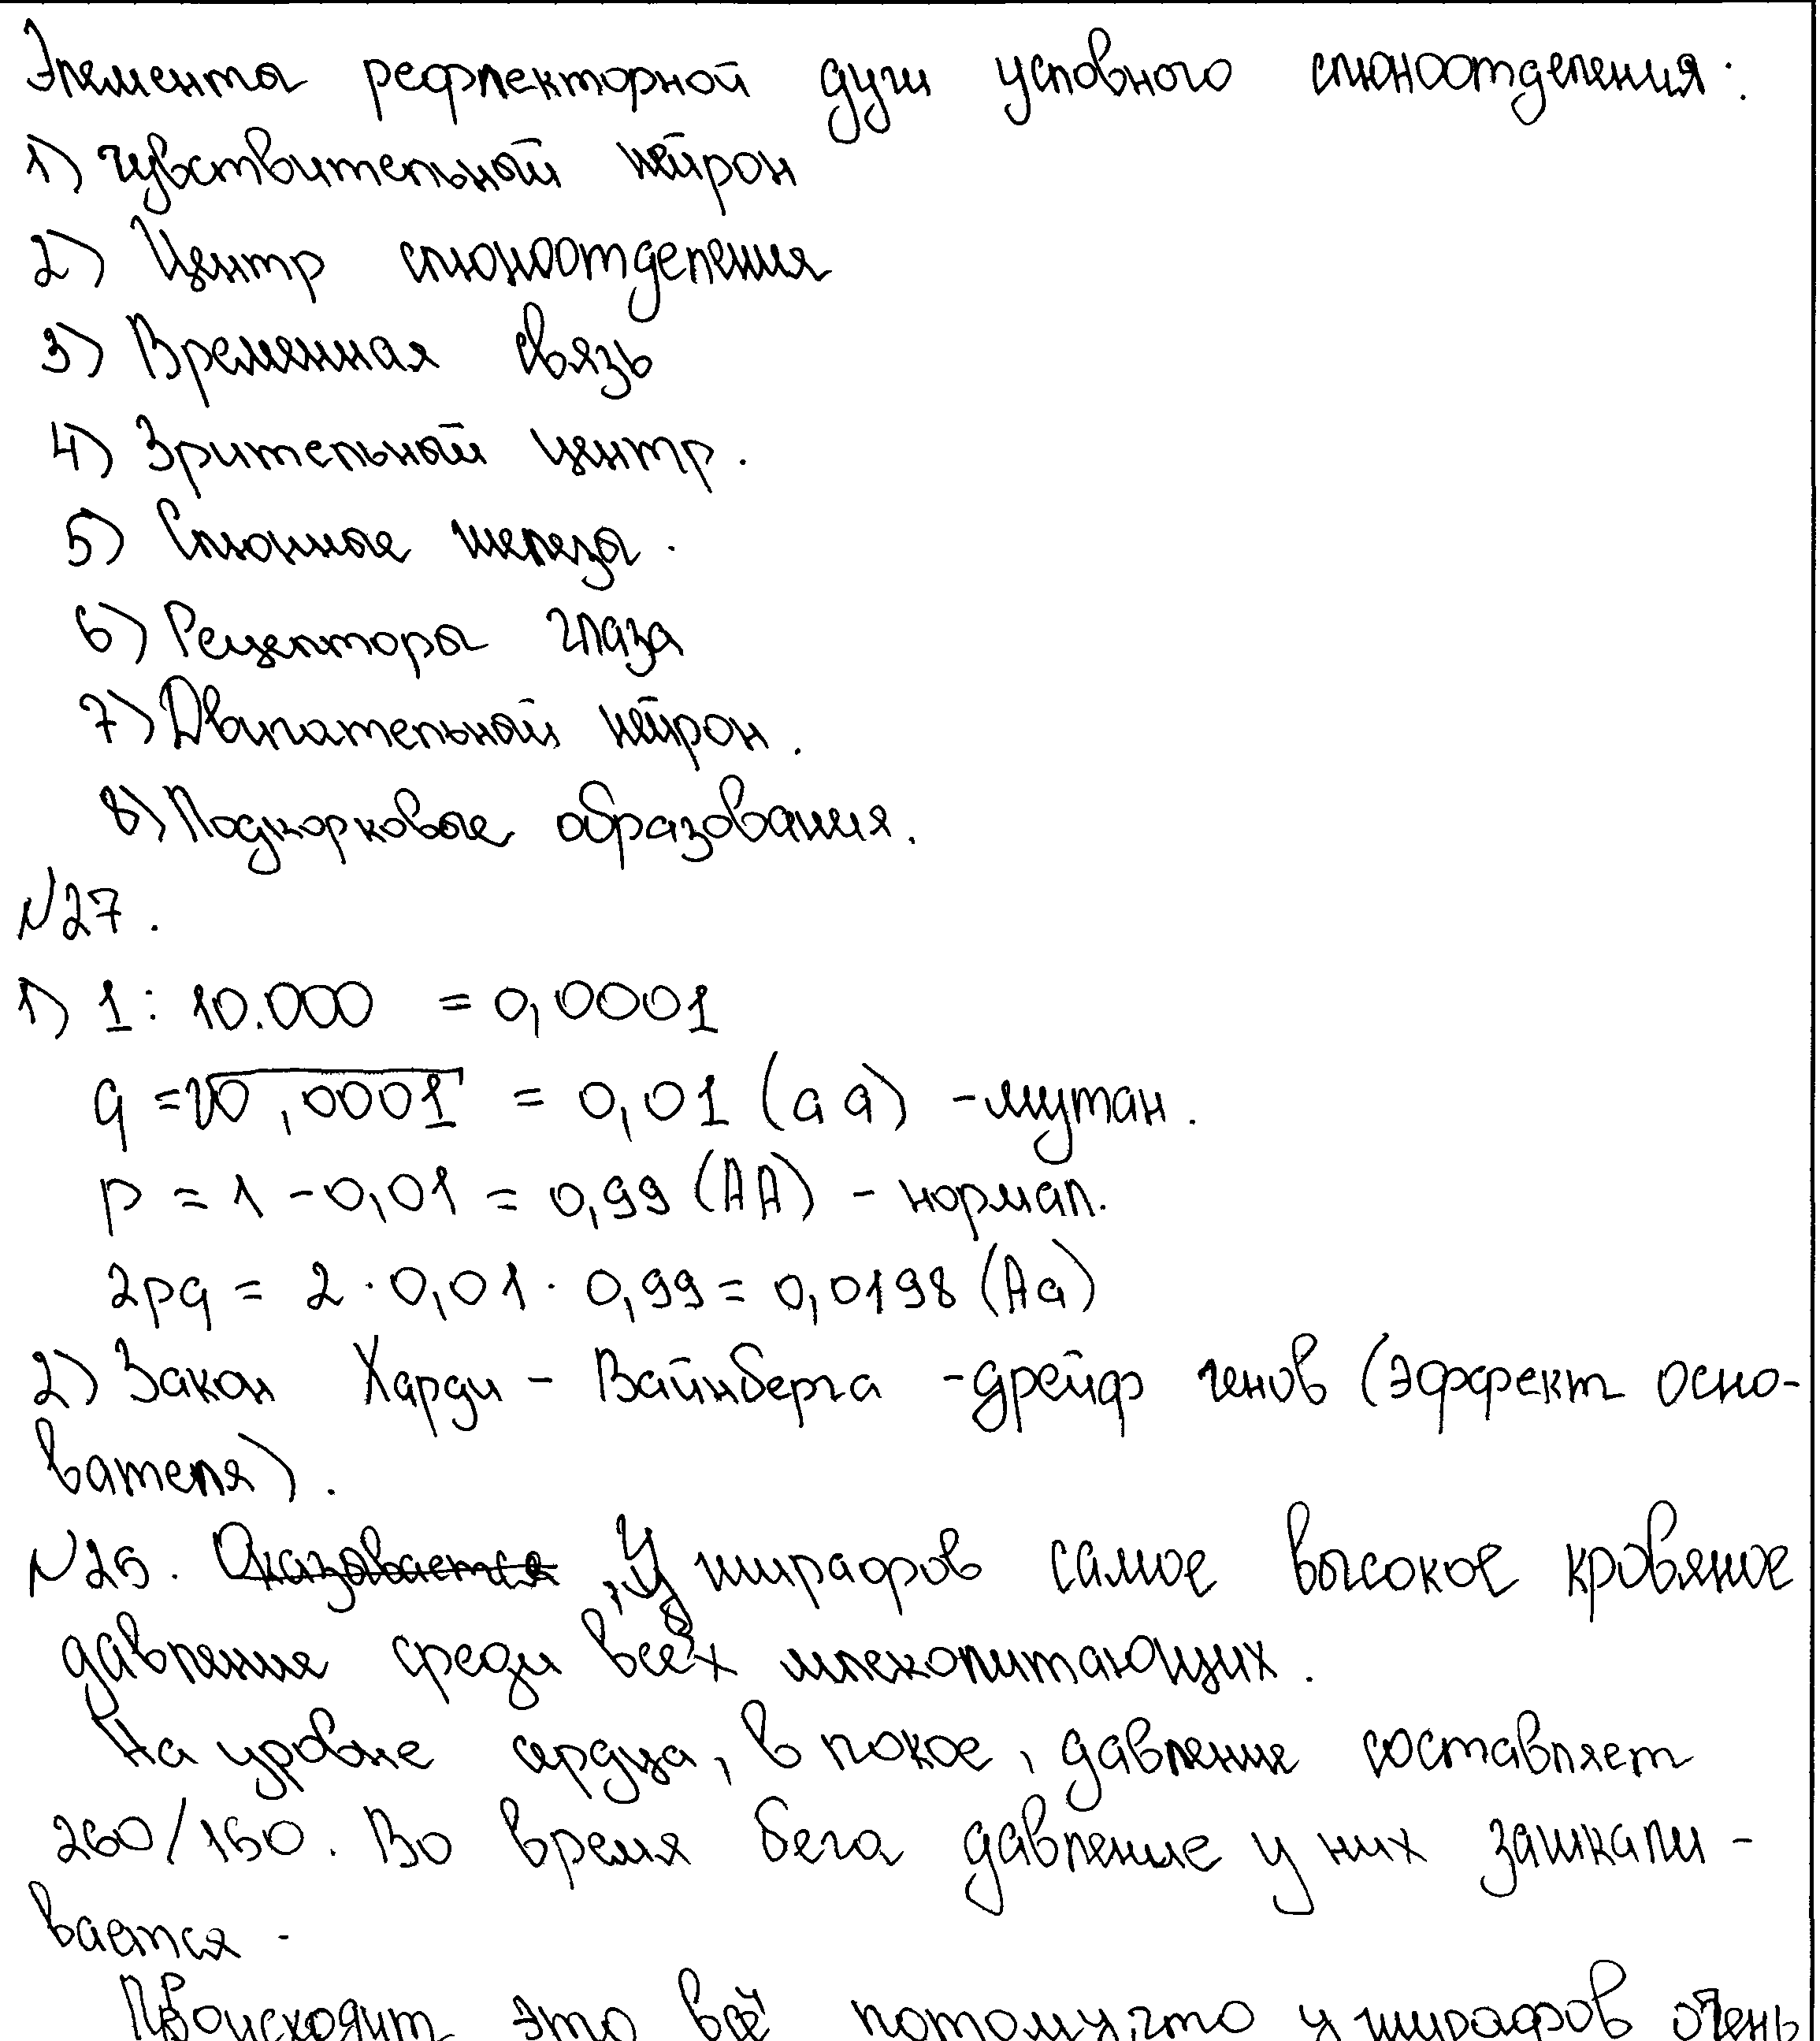 Элементы рефлекторной дуги условного слюноотделения:
1) чувствительный нейрон
2) Центр слюноотделения
3) Временная связь
4) Зрительный центр.
5) Слюнные железы.
6) Рецепторы глаза
7) Двигательный нейрон.
8) Подкорковые образования.
№27.
1) 1 : 10.000 = 0,0001
q = √0,0001 = 0,01 (aa) - мутан.
p = 1 - 0,01 = 0,99 (AA) - нормал.
2pq = 2 · 0,01 · 0,99 = 0,0198 (Aa)
2) Закон Харди - Вайнберга - дрейф генов (эффект осно-
вателя).
№25. Оказывается, У жирафов самое высокое кровяное
давление среди всех млекопитающих.
На уровне сердца, в покое, давление составляет
260/160. Во время бега давление у них зашкали-
вается.
Происходит это всё потому, что у жирафов очень